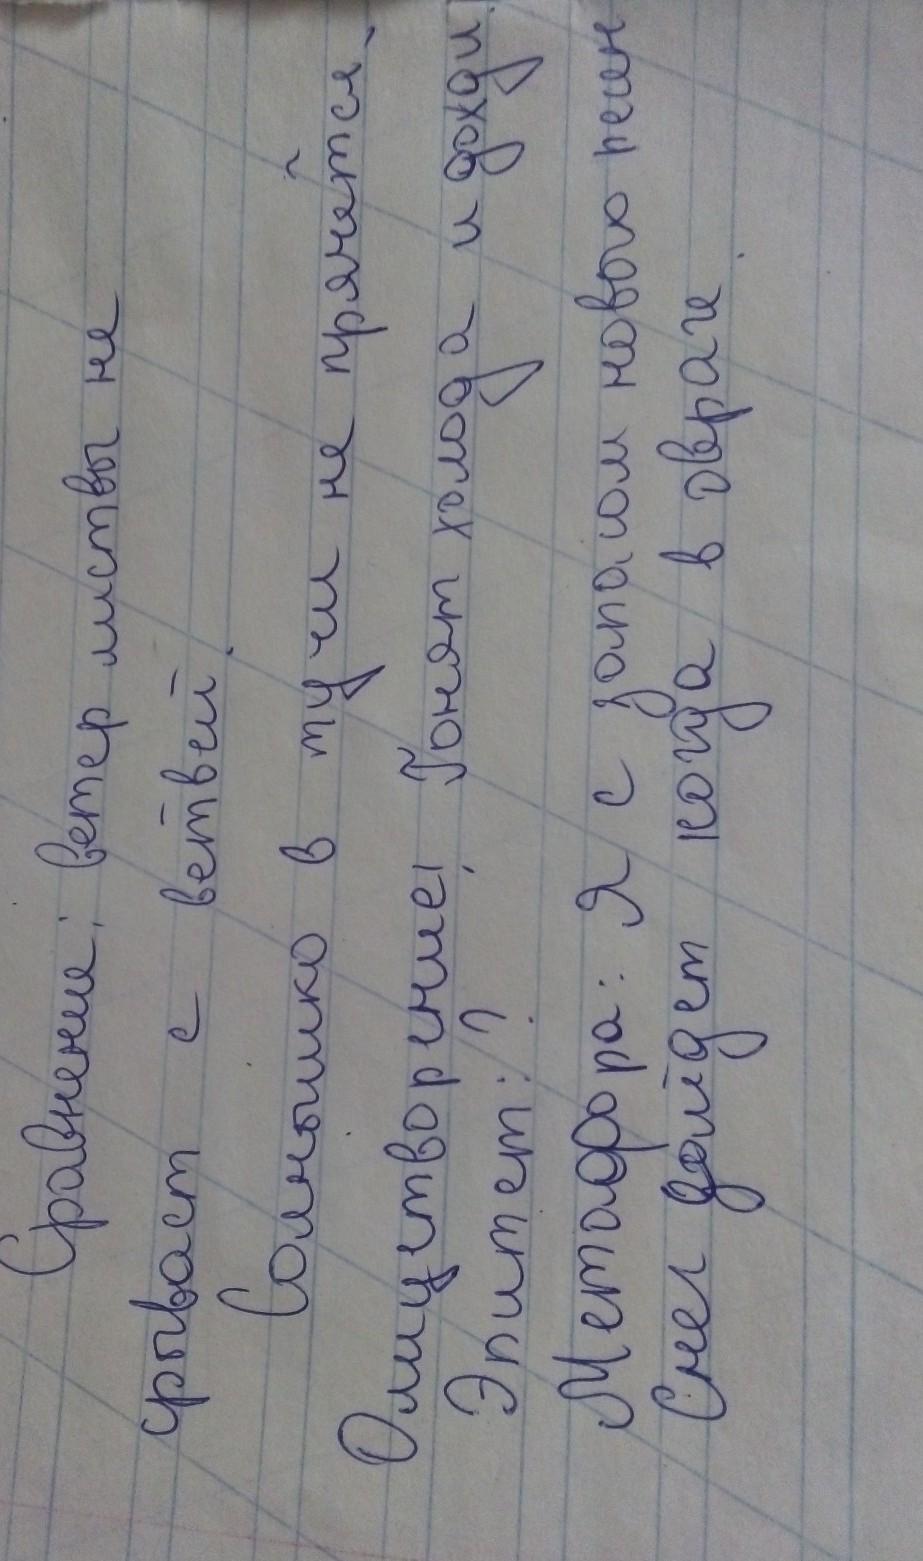 Сравнение: ветер листвы не
срывает с ветвей.
Солнышко в тучи не прячется
Олицетворение: Гонят холода и дожди.
Эпитет: ?
Метафора: Я с запасом новых
Снег дойдет когда в овраги.